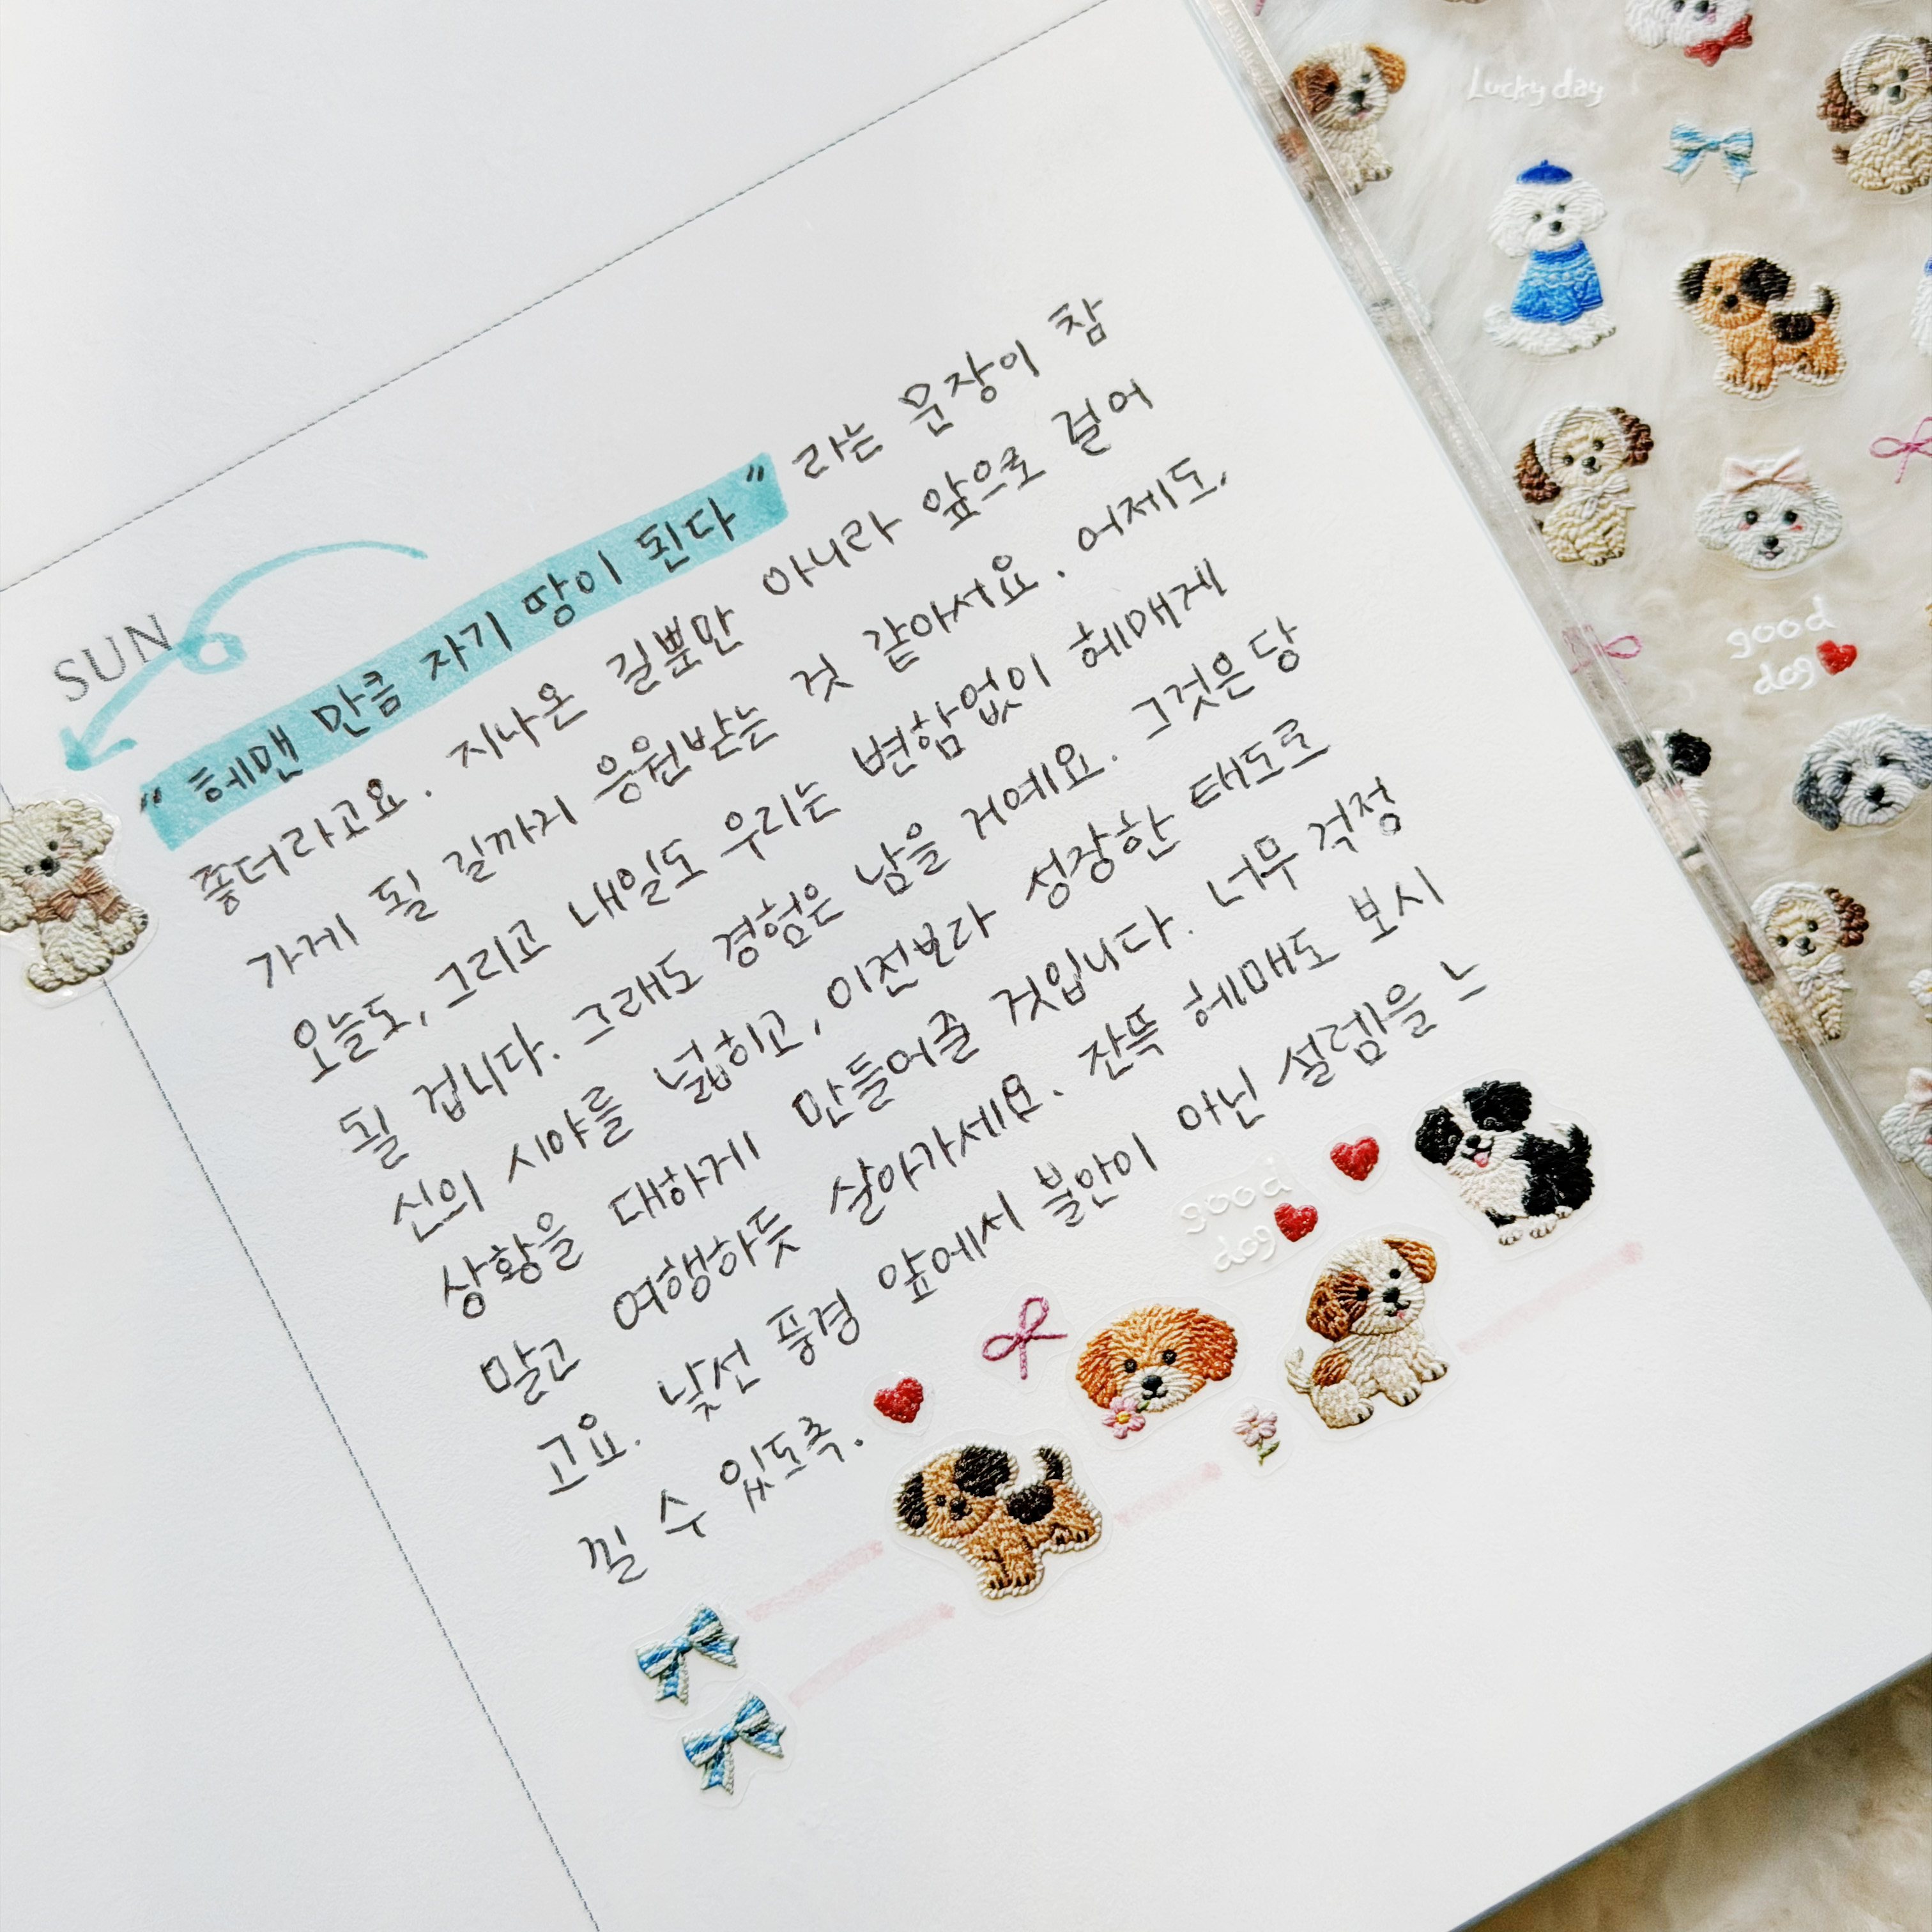 SUN
"헤맨 만큼 자기 땅이 된다" 라는 문장이 참
좋더라고요. 지나온 길뿐만 아니라 앞으로 걸어
가게 될 길까지 응원받는 것 같아서요. 어제도,
오늘도, 그리고 내일도 우리는 변함없이 헤매게
될 겁니다. 그래도 경험은 남을 거예요. 그것은 당
신의 시야를 넓히고, 이전보다 성장한 태도로
상황을 대하게 만들어줄 것입니다. 너무 걱정
말고 여행하듯 살아가세요. 잔뜩 헤매도 보시
고요. 낯선 풍경 앞에서 불안이 아닌 설렘을 느
낄 수 있도록.
good
dog
Lucky day
good
dog